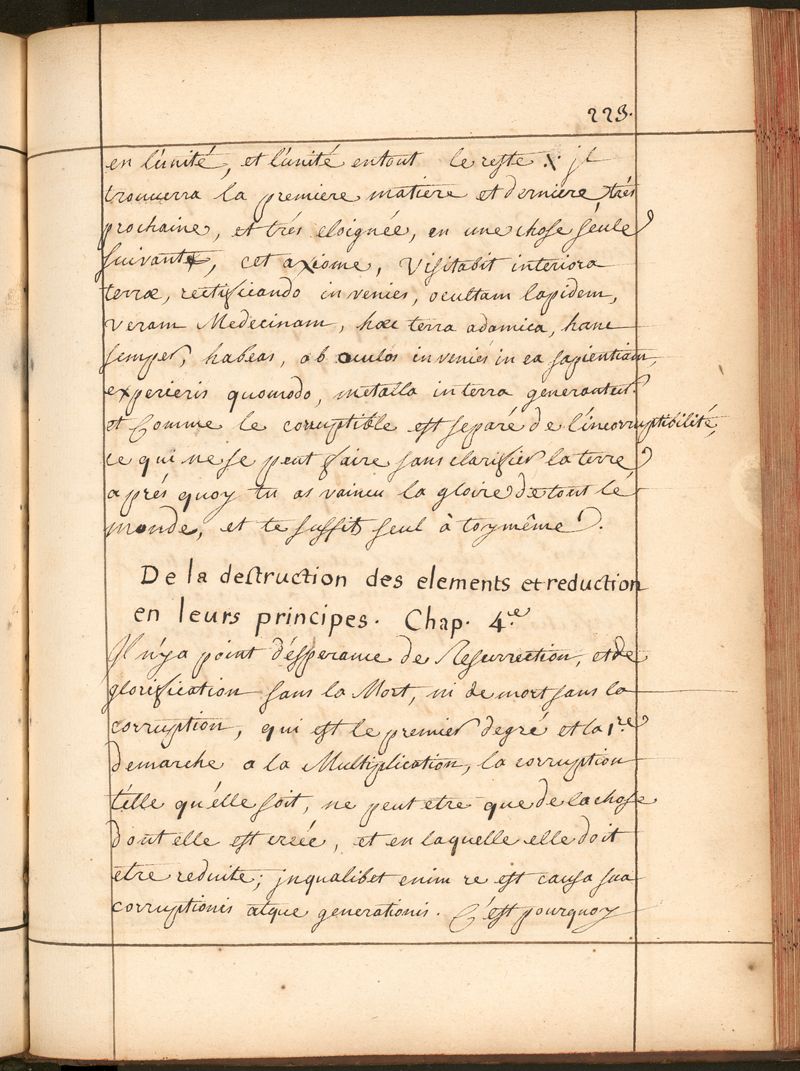 223.
en l'unité, et l'unité entout le reste X jl
trouuerra la premiere matiere et derniere, trés
prochaine, et trés eloignée, en une chose séule
suivant, cet axiome, Visitabit interiora
terræ, rectificando invenies, ocultam lapidem,
veram Medecinam, hæc terra adamica, hanc
semper, habeas, ob oculos inveniés in ea sapientiam,
experieris quomodo, metalla in terra generantur.
et Comme le corruptible est separé de l'incorruptibilité,
ce qui ne se peut faire sans clarifier la terre
aprés quoy tu as vaincu la gloire de tout le
monde, et te suffit seul à toymême.
De la destruction des elements et reduction
en leurs principes. Chap. 4.e
Jl n'ya point d'ésperance de Resurrection, et de
glorification sans la Mort, ni de mort sans la
corruption, qui est le premier degré et la 1.re
demarche a la Multiplication, la corruption
télle qu'élle soit, ne peut etre que de la chose
dont elle est creée, et en laquelle elle doit
etre reduite; jnqualibet enim re est causa sua
corruptionis atque generationis. C'est pourquoy